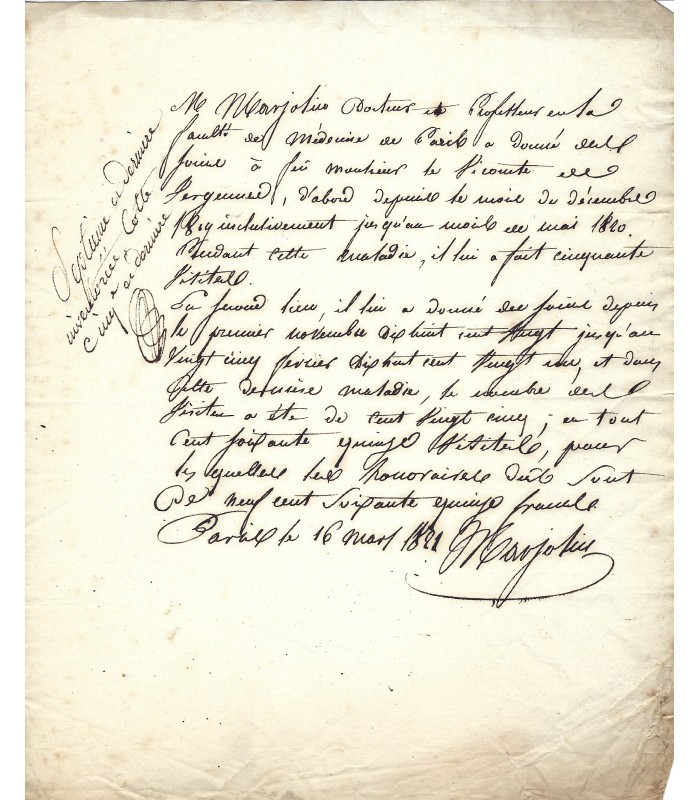 Septieme et derniere
inventoriée Cotte
cinq et derniere
Mr Marjolin Docteur et Professeur en la
faculté de Médecine de Paris a donné des
soins à feu monsieur le Vicomte de
, d'abord depuis le mois de décembre
1819 inclusivement jusqu'au mois de mai 1820.
Pendant cette maladie, il lui a fait cinquante
Visites.
En second lieu, il lui a donné des soins depuis
le premier novembre dix huit cent vingt jusqu'au
Vingt cinq fevrier dix huit cent vingt un, et dans
cette dernière maladie, le nombre des
Visites a été de cent vingt cinq; en tout
cent soixante quinze Visites, pour
les quelles les honoraires dûs sont
De neuf cent soixante quinze francs
Paris le 16 mars 1821 Marjolin